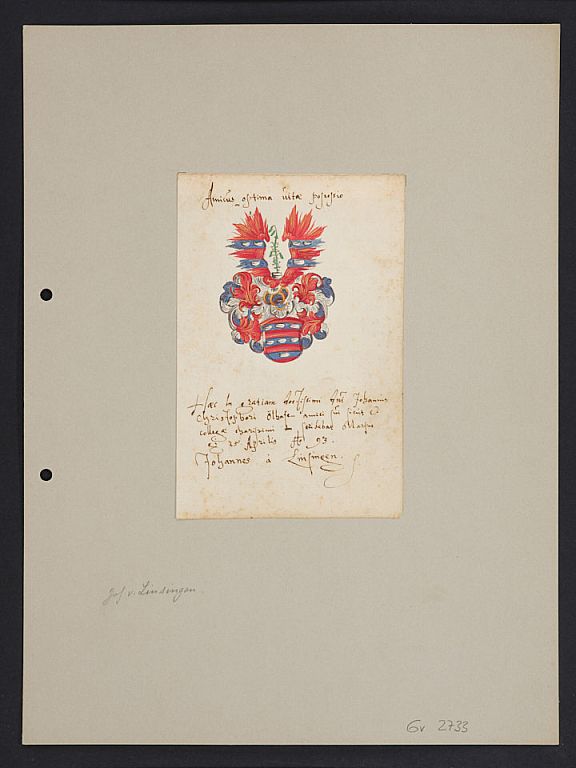 Amicus optima vitae possessio
Haec in gratiam doctissimi Dni Johannis
Christophori Olhafen amici sui
collegae charissimi scribebat
25 Aprilis Ao 93.
Johannes à Linsingen.
Joh v. Linsingen.
Gv 2733